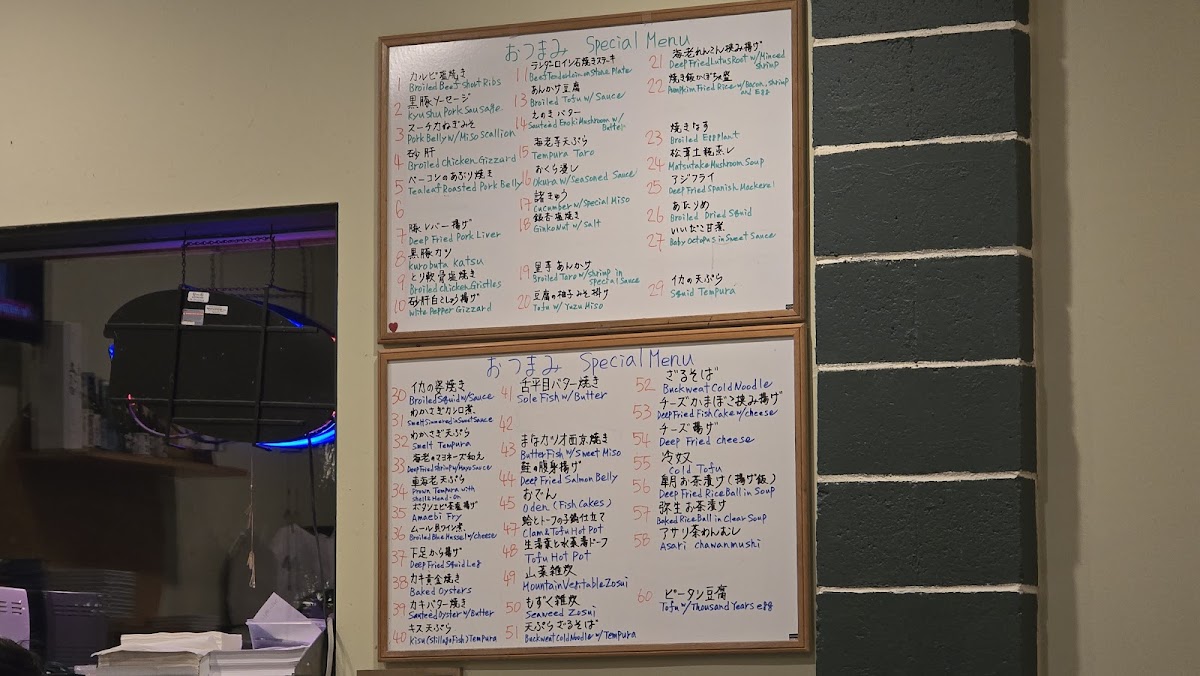 おつまみ Special Menu
1 カルビ塩焼き
Broiled Beef Short Ribs
2 黒豚ソーセージ
Kyushu Pork Sausage
3 スーチカねぎみそ
Pork Belly w/ Miso Scallion
4 砂肝
Broiled Chicken Gizzard
5 ベーコンのあぶり焼き
Tealeaf Roasted Pork Belly
6
7 豚レバー揚げ
Deep Fried Pork Liver
8 黒豚カツ
Kurobuta Katsu
9 とり軟骨塩焼き
Broiled Chicken Gristles
10 砂肝白こしょう揚げ
White Pepper Gizzard
11 テンダーロイン石焼きステーキ
Beef Tenderloin on Stone Plate
13 あんかけ豆腐
Broiled Tofu w/ Sauce
14 えのきバター
Sauteed Enoki Mushroom w/ Butter
15 海老芋天ぷら
Tempura Taro
16 おくら浸し
Okura w/ Seasoned Sauce
17 諸きゅう
Cucumber w/ Special Miso
18 銀杏塩焼き
Ginko Nut w/ Salt
19 里芋あんかけ
Broiled Taro w/ shrimp in
Special Sauce
20 豆腐の柚子みそ掛け
Tofu w/ Yuzu Miso
21 海老れんこん挟み揚げ
Deep Fried Lutus Root w/ Minced
shrimp
22 焼き飯かぼちゃ
Pumpkin Fried Rice w/ Bacon, shrimp
and Egg
23 焼きなす
Broiled Eggplant
24 松茸土瓶蒸し
Matsutake Mushroom Soup
25 アジフライ
Deep Fried Spanish Mackerel
26 あたりめ
Broiled Dried Squid
27 いいだこ甘煮
Baby Octopus in Sweet Sauce
29 イカの天ぷら
Squid Tempura
おつまみ Special Menu
30 イカの姿焼き
Broiled Squid w/ Sauce
31 わかさぎカンロ煮
Smelt Simmered in Sweet Sauce
32 わかさぎ天ぷら
Smelt Tempura
33 海老のマヨネーズ和え
Deep Fried Shrimp w/ Mayo Sauce
34 車海老天ぷら
Prawn Tempura with
Shell & Head-on
35 ボタンエビ唐揚げ
Amaebi Fry
36 ムール貝ワイン煮
Broiled Blue Mussel w/ cheese
37 下足から揚げ
Deep Fried Squid Leg
38 カキ黄金焼き
Baked Oysters
39 カキバター焼き
Sauteed Oyster w/ Butter
40 キス天ぷら
Kisu (Stillago Fish) Tempura
41 舌平目バター焼き
Sole Fish w/ Butter
42
43 まなカツオ西京焼き
Butter Fish w/ Sweet Miso
44 鮭の腹身揚げ
Deep Fried Salmon Belly
45 おでん
Oden (Fish Cakes)
47 蛤とトーフの子鍋仕立て
Clam & Tofu Hot Pot
48 生湯葉と水菜湯ドーフ
Tofu Hot Pot
49 山菜雑炊
Mountain Vegetable Zosui
50 もずく雑炊
Seaweed Zosui
51 天ぷらざるそば
Buckweat Cold Noodle w/ Tempura
52 ざるそば
Buckweat Cold Noodle
53 チーズかまぼこ挟み揚げ
Deep Fried Fish Cake w/ cheese
54 チーズ揚げ
Deep Fried cheese
55 冷奴
Cold Tofu
56 皐月お茶漬け(揚げ飯)
Deep Fried Rice Ball in Soup
57 弥生お茶漬け
Baked Rice Ball in Clear Soup
58 アサリ茶わんむし
Asari chawanmushi
60 ピータン豆腐
Tofu w/ Thousand Years egg